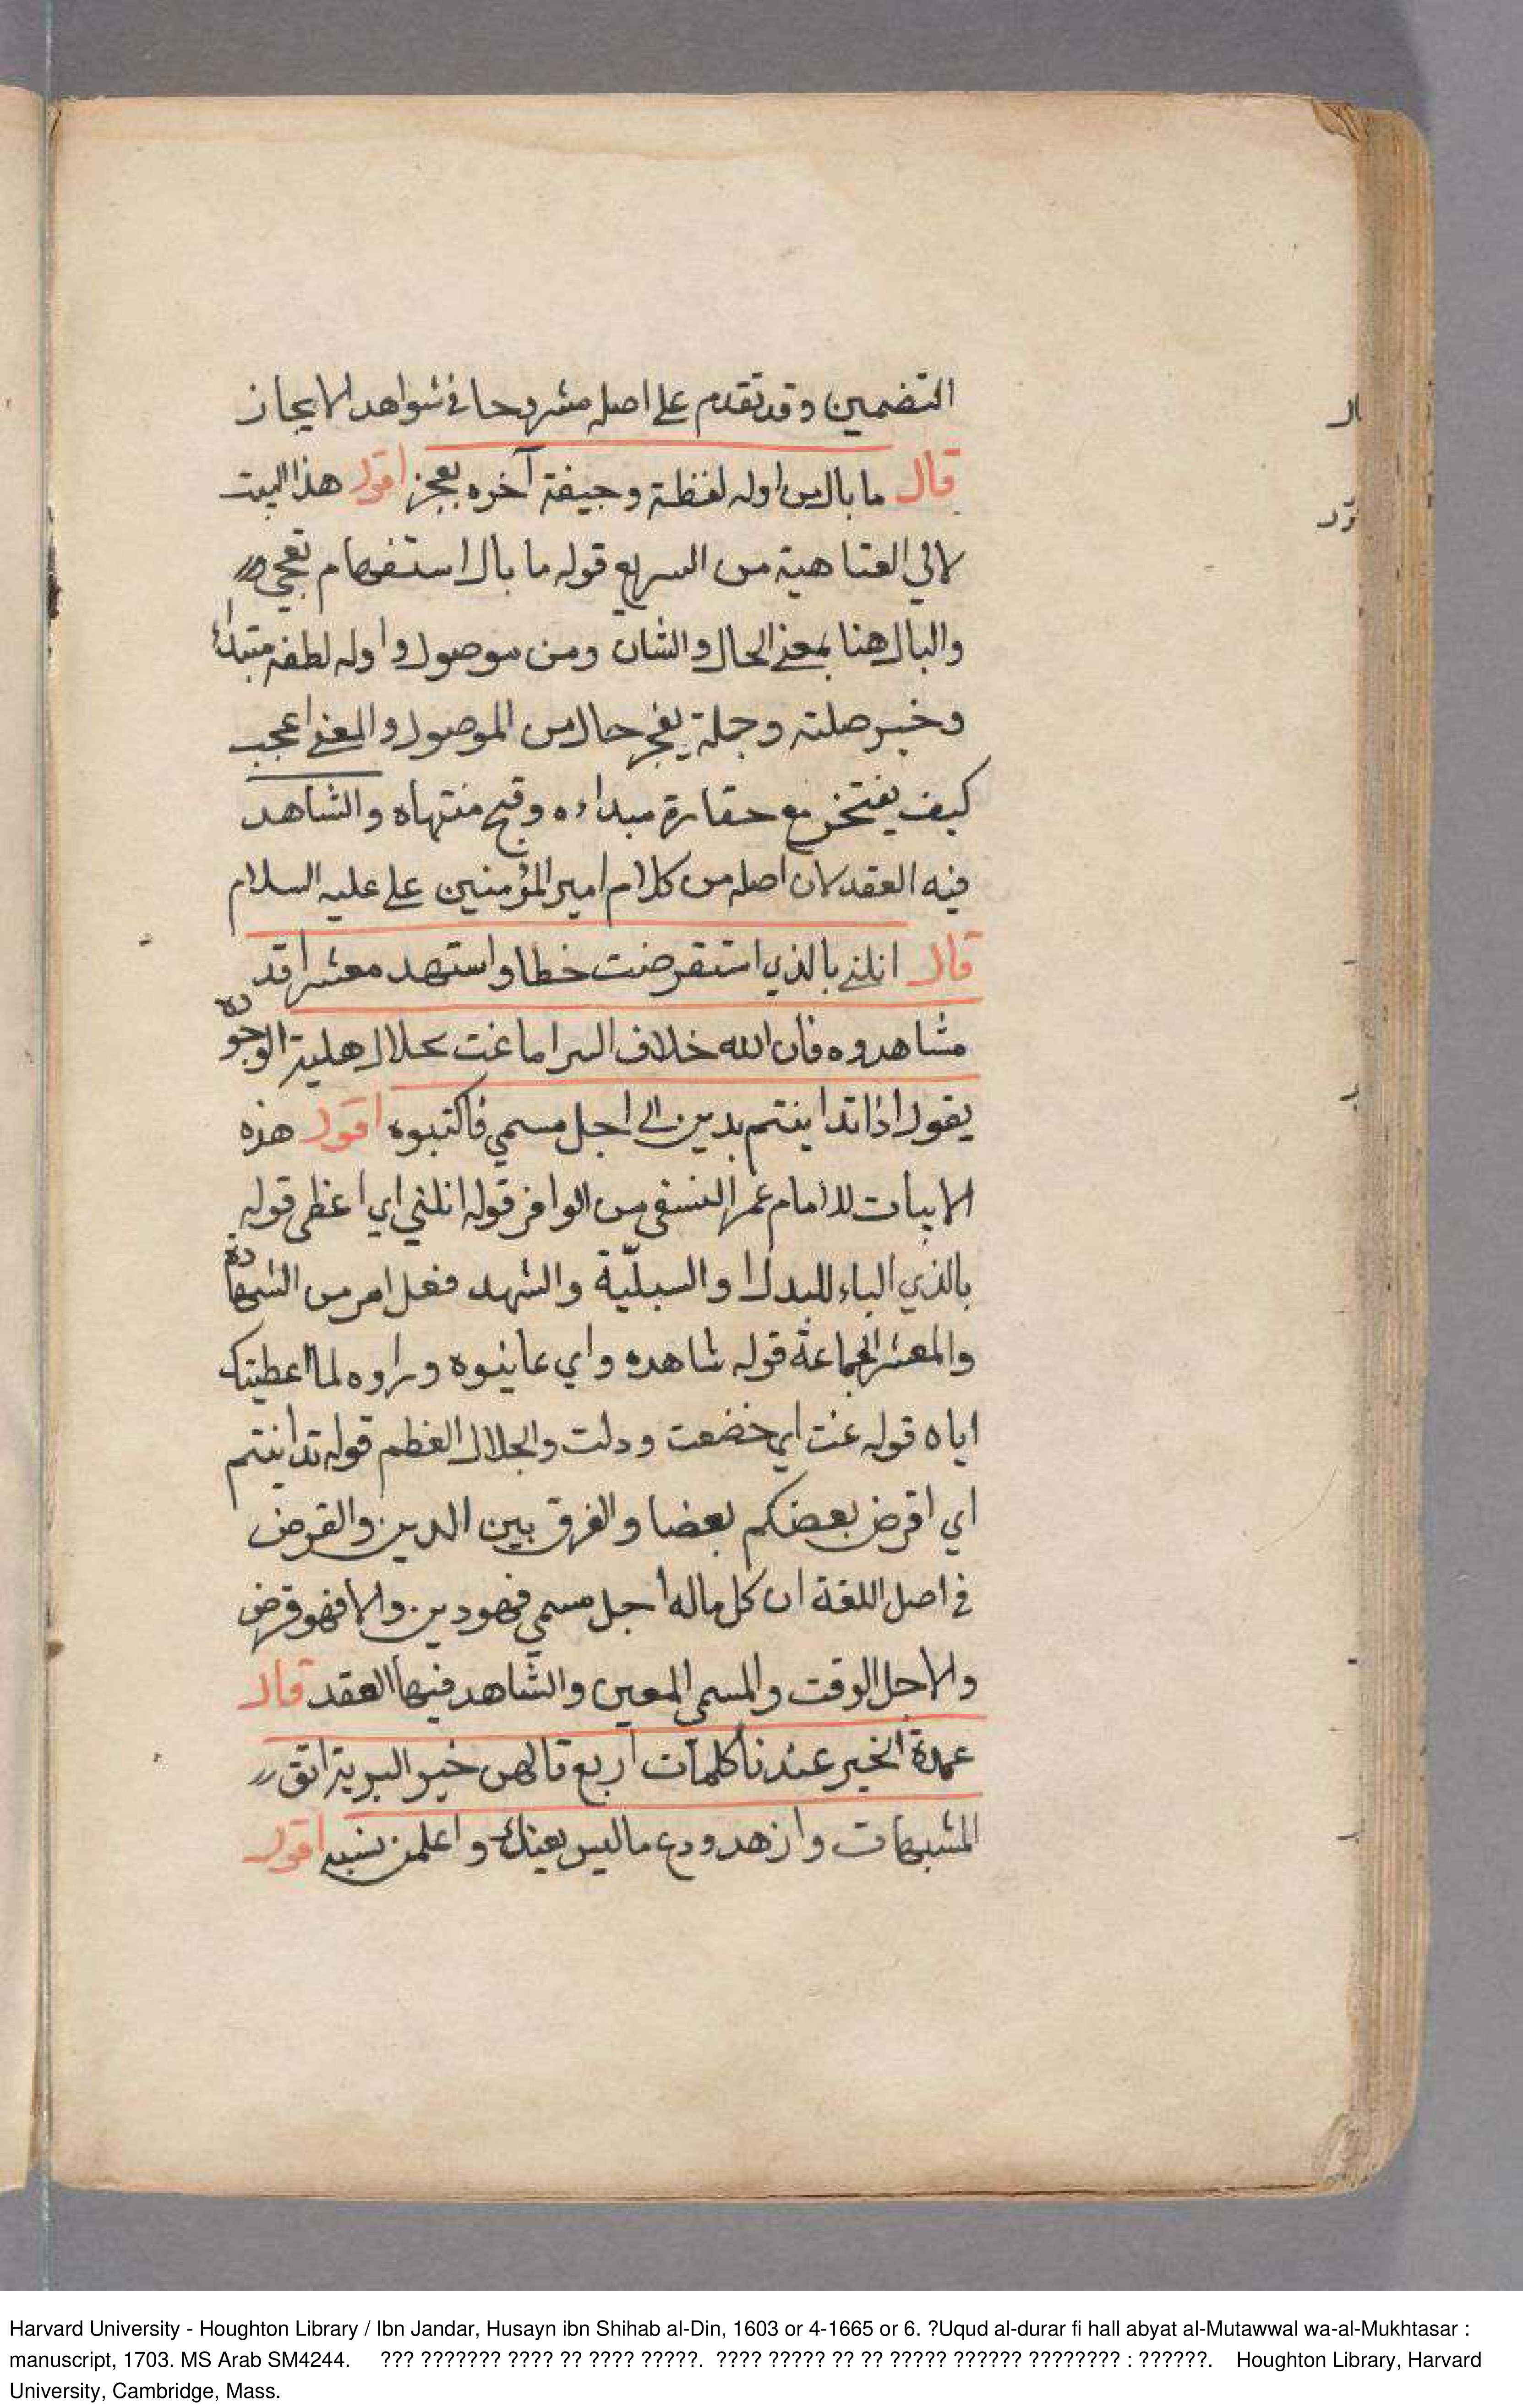 التضمين وقد تقدم على اصله مشروحا في شواهد الايجاز
قال ما بال من اوله لفظة وجيفة آخره يعجز اقول هذا البيت
لابي العتاهية من السريع قوله ما بال استفهام تعجبي
والبال هنا بمعنى الحال والشان ومن موصول واوله لطفه مبتدأ
وخبر صلته وجملة يفجر حال من الموصول والمعنى اعجب
كيف يفتخر مع حقارة مبداءه وقبح منتهاه والشاهد
فيه العقد لان اصله من كلام امير المؤمنين على عليه السلام
قال انلنى بالذي استقرضت خطا واستهد معشرا قد
مشاهدوه فان الله خلاف البرا ما عنت بجلال هليبة الوجوده
يقول اذا تداينتم بدين الى اجل مسمي فاكتبوه اقول هذه
الابيات للامام عمر النسفى من الوافر قوله انلني اي اعظى قوله
بالذي الباء للبدل او السببيّة والشهد فعل امر من الشهادة
والمعشر الجماعة قوله شاهده واي عاينوه وراوه لما اعطيتك
اياه قوله عنت اي خضعت ودلت والجلال العظم قوله تداينتم
اي اقرض بعضكم بعضا والفرق بين الدين والقرض
في اصل اللغة ان كل ماله اجل مسمي فهو دين والا فهو قرض
والاجل الوقت والمسمى المعين والشاهد فيها العقد قال
عمدة الخير عندنا كلمات اربع قالهن خير البرية اتق
المشبهات وازهد ودع ما ليس يعينك واعلمن بنيه اقول
Harvard University - Houghton Library / Ibn Jandar, Husayn ibn Shihab al-Din, 1603 or 4-1665 or 6. ?Uqud al-durar fi hall abyat al-Mutawwal wa-al-Mukhtasar :
manuscript, 1703. MS Arab SM4244. ??? ??????? ???? ?? ???? ?????. ???? ????? ?? ?? ????? ?????? ???????? : ??????. Houghton Library, Harvard
University, Cambridge, Mass.